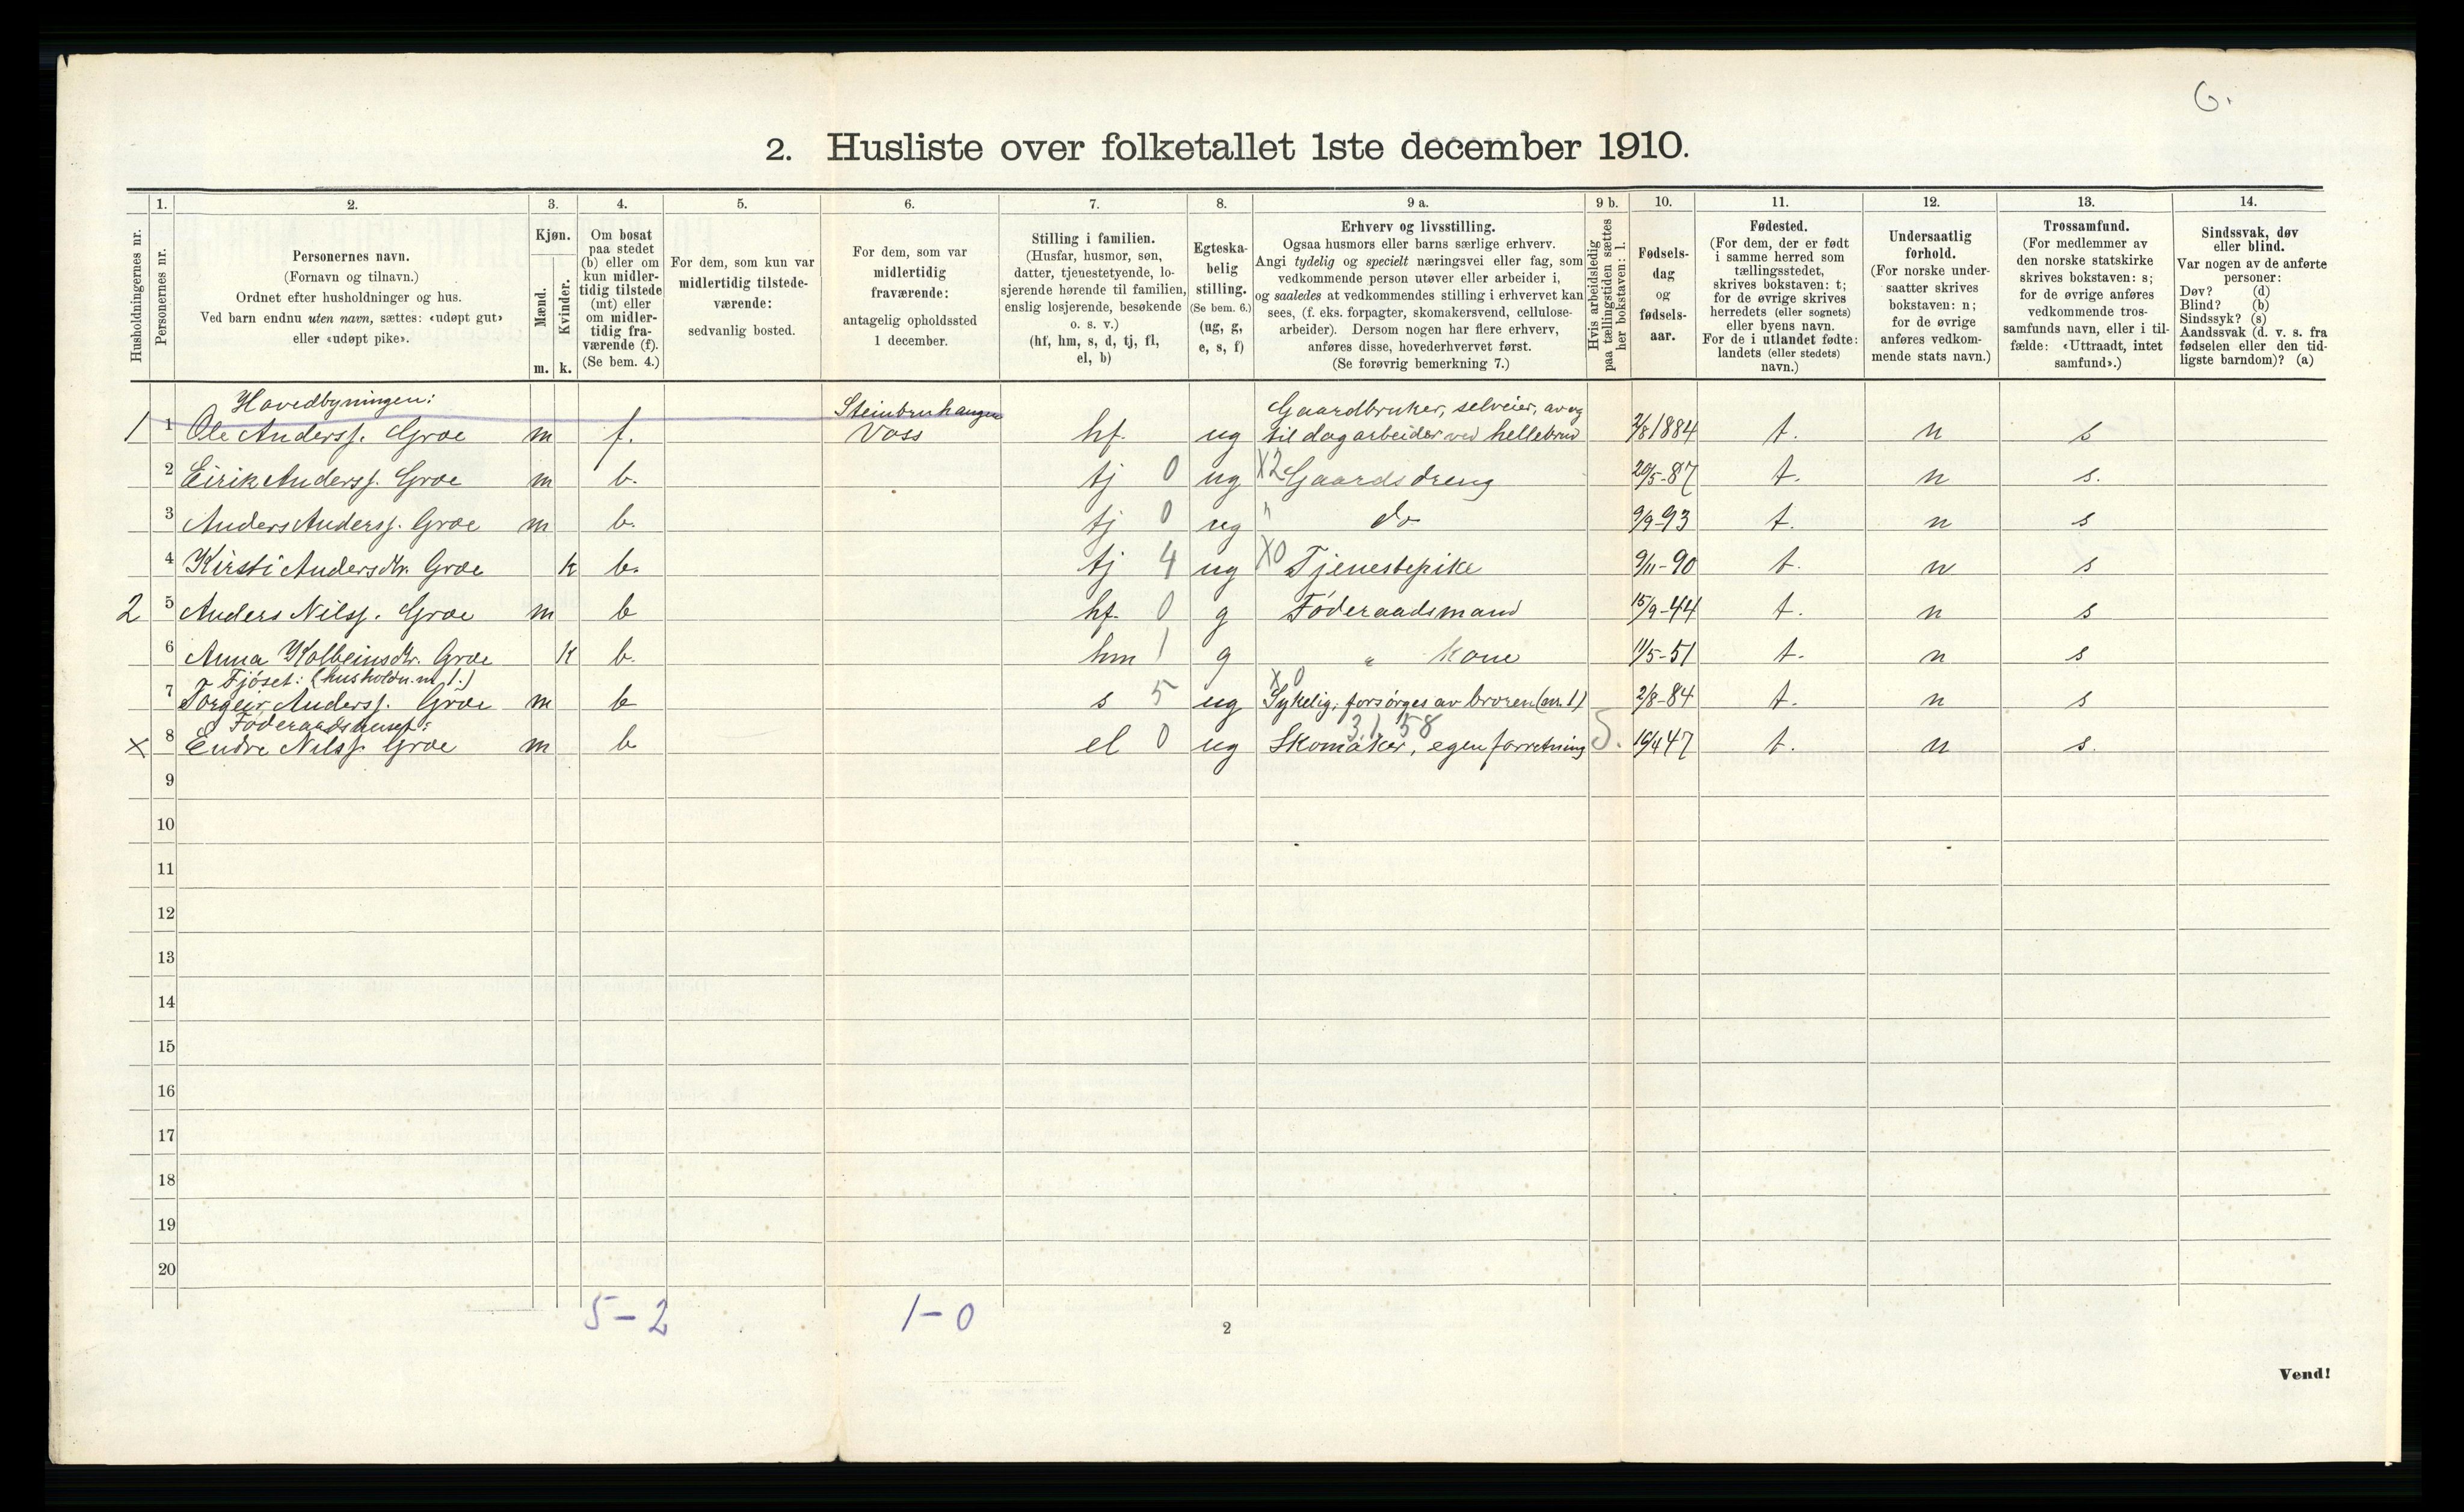 6.
2. Husliste over folketallet 1ste december 1910.
Husholdningernes nr.
1.
Personernes nr.
2.
Personernes navn.
(Fornavn og tilnavn.)
Ordnet efter husholdninger og hus.
Ved barn endnu uten navn, sættes: «udøpt gut»
eller «udøpt pike».
3.
Kjøn.
Mænd.
Kvinder.
m. k.
4.
Om bosat
paa stedet
(b) eller om
kun midler-
tidig tilstede
(mt) eller
om midler-
tidig fra-
værende (f).
(Se bem. 4.)
5.
For dem, som kun var
midlertidig tilstede-
værende:
sedvanlig bosted.
6.
For dem, som var
midlertidig
fraværende:
antagelig opholdssted
1 december.
7.
Stilling i familien.
(Husfar, husmor, søn,
datter, tjenestetyende, lo-
sjerende hørende til familien,
enslig losjerende, besøkende
o. s. v.)
(hf, hm, s, d, tj, fl,
el, b)
8.
Egteska-
belig
stilling.
(Se bem. 6.)
(ug, g,
e, s, f)
9 a.
Erhverv og livsstilling.
Ogsaa husmors eller barns særlige erhverv.
Angi tydelig og specielt næringsvei eller fag, som
vedkommende person utøver eller arbeider i,
og saaledes at vedkommendes stilling i erhvervet kan
sees, (f. eks. forpagter, skomakersvend, cellulose-
arbeider). Dersom nogen har flere erhverv,
anføres disse, hovederhvervet først.
(Se forøvrig bemerkning 7.)
9 b.
Hvis arbeidsledig
paa tællingstiden sættes
her bokstaven: l.
10.
Fødsels-
dag
og
fødsels-
aar.
11.
Fødested.
(For dem, der er født
i samme herred som
tællingsstedet,
skrives bokstaven: t;
for de øvrige skrives
herredets (eller sognets)
eller byens navn.
For de i utlandet fødte:
landets (eller stedets)
navn.)
12.
Undersaatlig
forhold.
(For norske under-
saatter skrives
bokstaven: n;
for de øvrige
anføres vedkom-
mende stats navn.)
13.
Trossamfund.
(For medlemmer av
den norske statskirke
skrives bokstaven: s;
for de øvrige anføres
vedkommende tros-
samfunds navn, eller i til-
fælde: «Uttraadt, intet
samfund».)
14.
Sindssvak, døv
eller blind.
Var nogen av de anførte
personer:
Døv? (d)
Blind? (b)
Sindssyk? (s)
Aandssvak (d. v. s. fra
fødselen eller den tid-
ligste barndom)? (a)
Hovedbyningen: Gaardbruker, selveier, av og
1 1 Ole Anderss. Groe m f. Voss hf. ug til dagarbeider ved hellebrud 2/8 1884 t. n s
2 Eirik Anderss. Groe m b. tj 0 ug X2 Gaardsdreng 20/5-87 t. n s.
3 Anders Anderss. Groe m b. tj 0 ug " do 9/9-93 t. n s
4 Kirsti Andersdtr. Groe k b. tj 4 ug X0 Tjenestepike 9/11-90 t. n s
2 5 Anders Nilss. Groe m b hf. 0 g Føderaadsmand 15/9-44 t. n s
6 Anna Kolbeinsdtr. Groe k b. hm 1 g " kone 11/5-51 t. n s
Fjøset: (husholdn. nr. 1.) X0
7 Torgeir Anderss. Groe m b s 5 ug Sykelig, forsørges av broren (nr. 1) 2/8-84 t. n s
Føderaadshuset: 31,58
x 8 Endre Nilss. Groe m b el 0 ug Skomaker, egen forretning 5. 16/4 47 t. n s.
9
10
11
12
13
14
15
16
17
18
19
20
5-2 1-0
2
Vend!